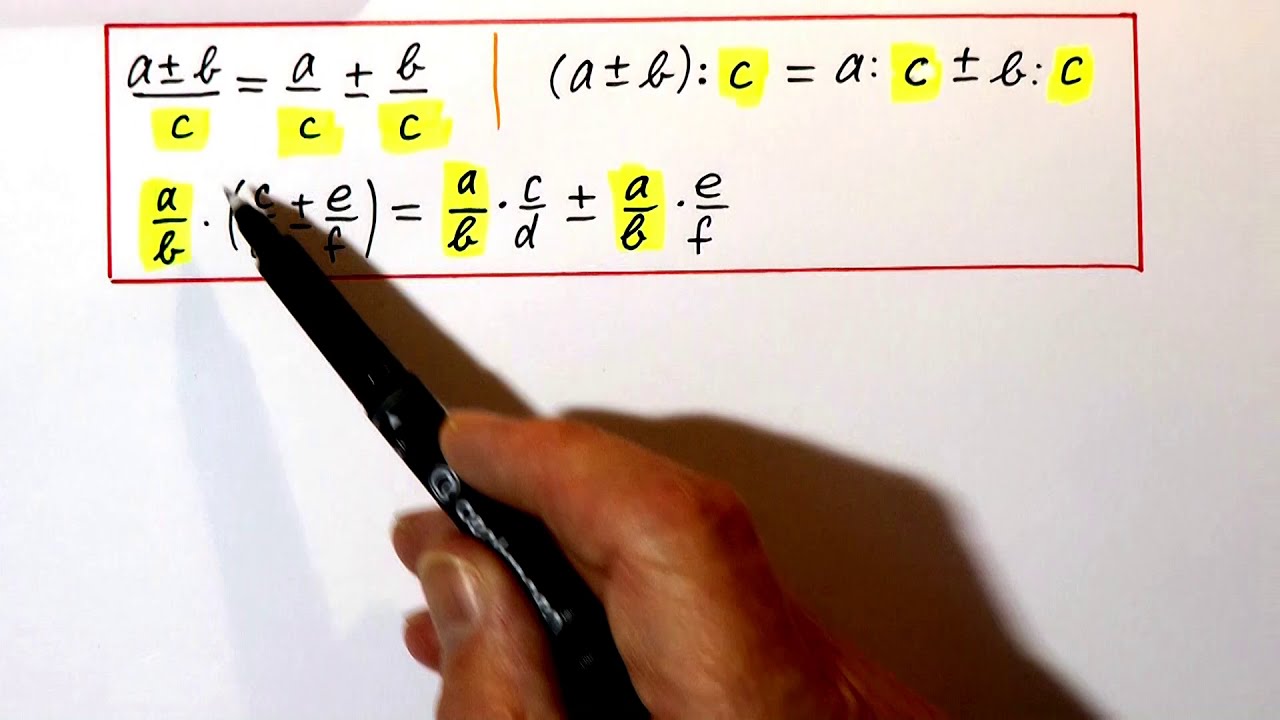 (a±b)/c = a/c ± b/c | (a±b):c = a:c ± b:c
a/b · (c/ ± e/f) = a/b · c/d ± a/b · e/f